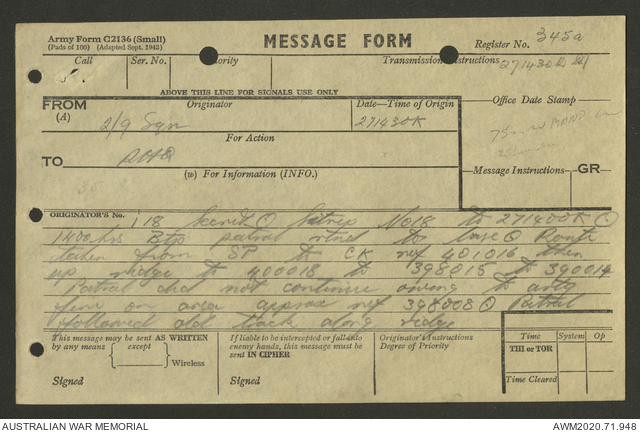 Army Form C2136 (Small)
(Pads of 100) (Adapted Sept. 1942)
MESSAGE FORM
Register No. 345a
Call
Ser. No.
Priority
Transmission Instructions
271430K
ABOVE THIS LINE FOR SIGNALS USE ONLY
FROM
(A)
Originator
Date—Time of Origin
2/9 Sqn
271430K
Office Date Stamp
For Action
TO
RHQ
(w) For Information (INFO.)
Message Instructions
GR
ORIGINATOR'S No.
118 Secret Sitrep No 18 to 271400K
1400 hrs Btp patrol rtned to base Route
taken from SP to CK ref 401016 then
up ridge to 400018 to 398015 to 390014
Patrol did not continue owing to arty
fire on area approx ref 398008 Patrol
followed old track along ridge
This message may be sent AS WRITTEN
by any means except
Wireless
Signed
If liable to be intercepted or fall into
enemy hands, this message must be
sent IN CIPHER
Signed
Originator's Instructions
Degree of Priority
Time
System
Op
THI or TOR
Time Cleared
AUSTRALIAN WAR MEMORIAL
AWM2020.71.948